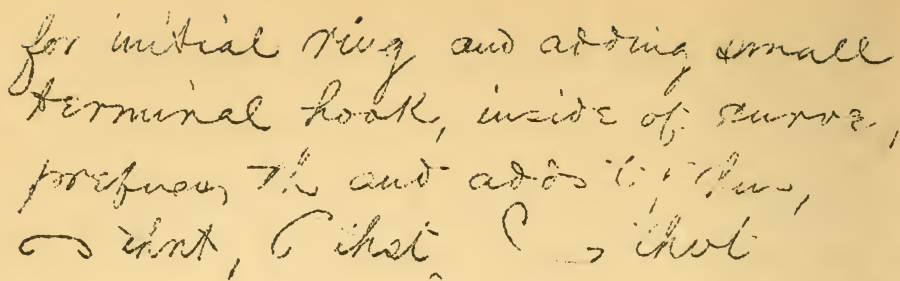 for initial ring and adding small
terminal hook, inside of curve,
prefixes th and adds t; thus,
thnt, thst, thvt